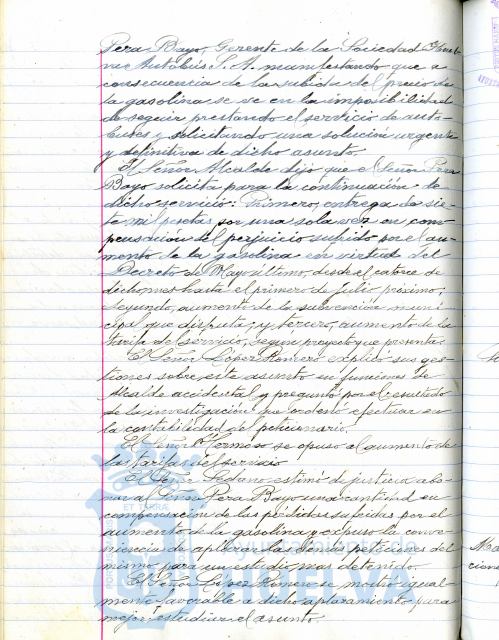 Pera Bayo, Gerente de la Sociedad
Autobus S. A. manifestando que a
consecuencia de la subida del precio de
la gasolina se ve en la imposibilidad
de seguir prestando el servicio de auto-
buses y solicitando una solución urgente
y definitiva de dicho asunto.
El Señor Alcalde dijo que el Señor Pera
Bayo solicita para la continuación de
dicho servicio: Primero, entrega de sie-
te mil pesetas por una sola vez en com-
pensación del perjuicio sufrido por el au-
mento de la gasolina en virtud del
Decreto de Mayo último, desde el catorce de
dicho mes hasta el primero de Julio próximo;
segundo, aumento de la subvención muni-
cipal que disfruta; y tercero, aumento de la
tarifa del servicio, según proyecto que presenta.
El Señor López Romero explicó sus ges-
tiones sobre este asunto en funciones de
Alcalde accidental y preguntó por el resultado
de la investigación que ordenó efectuar en
la contabilidad del peticionario.
El Señor Bermoso se opuso al aumento de
las tarifas del servicio
El Señor Sedano estimó de justicia abo-
nar al Señor Pera Bayo una cantidad en
compensación de las pérdidas sufridas por el
aumento de la gasolina y expuso la conve-
niencia de aplazar las demás peticiones del
mismo para un estudio mas detenido.
El Señor López Romero se mostró igual-
mente favorable a dicho aplazamiento para
mejor estudiar el asunto
HUELVA